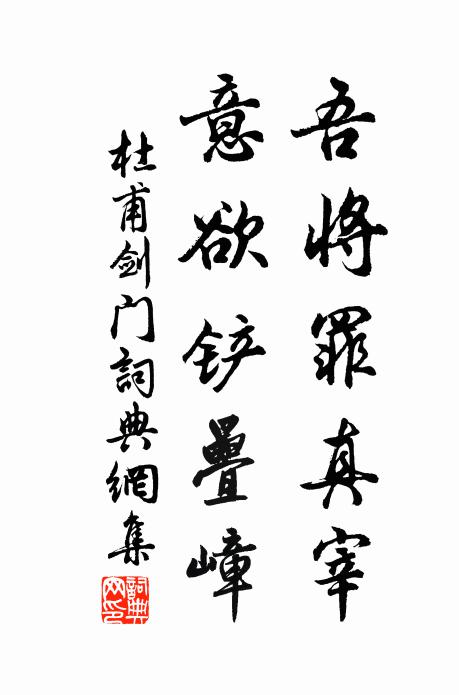 吾将罪真宰
意欲铲疊嶂
杜甫剑门詞典網集
詞典网印